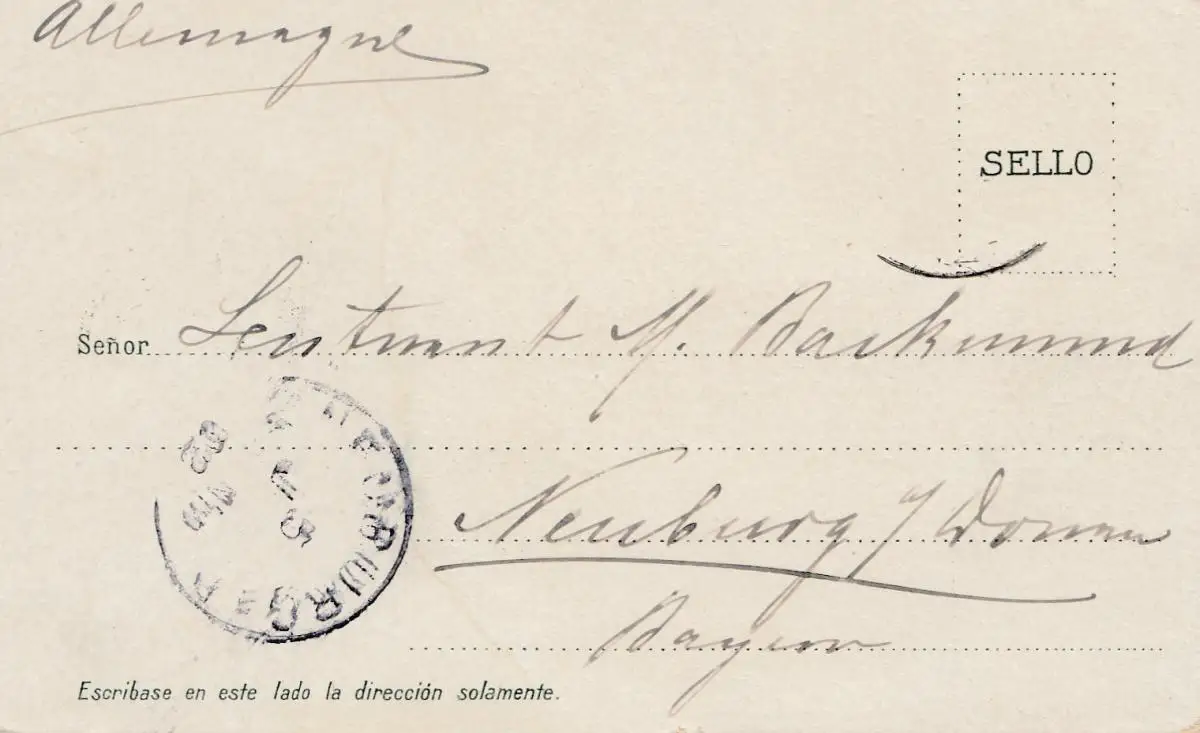 Allemagne
SELLO
Señor Leutnant M. Backmund
Neuburg a/ Donau
Bayern
NEUBURG
Escríbase en este lado la dirección solamente.